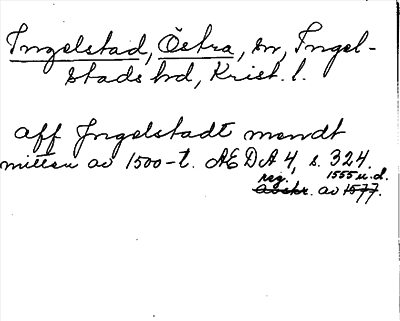 Ingelstad, Östra, sn, Ingel-
stads hd, Krist. l.
aff Jngelstadt mendt
mitten av 1500-t. AEDA 4, s. 324.
reg. 1555 u.d.
avskr. av 1577.